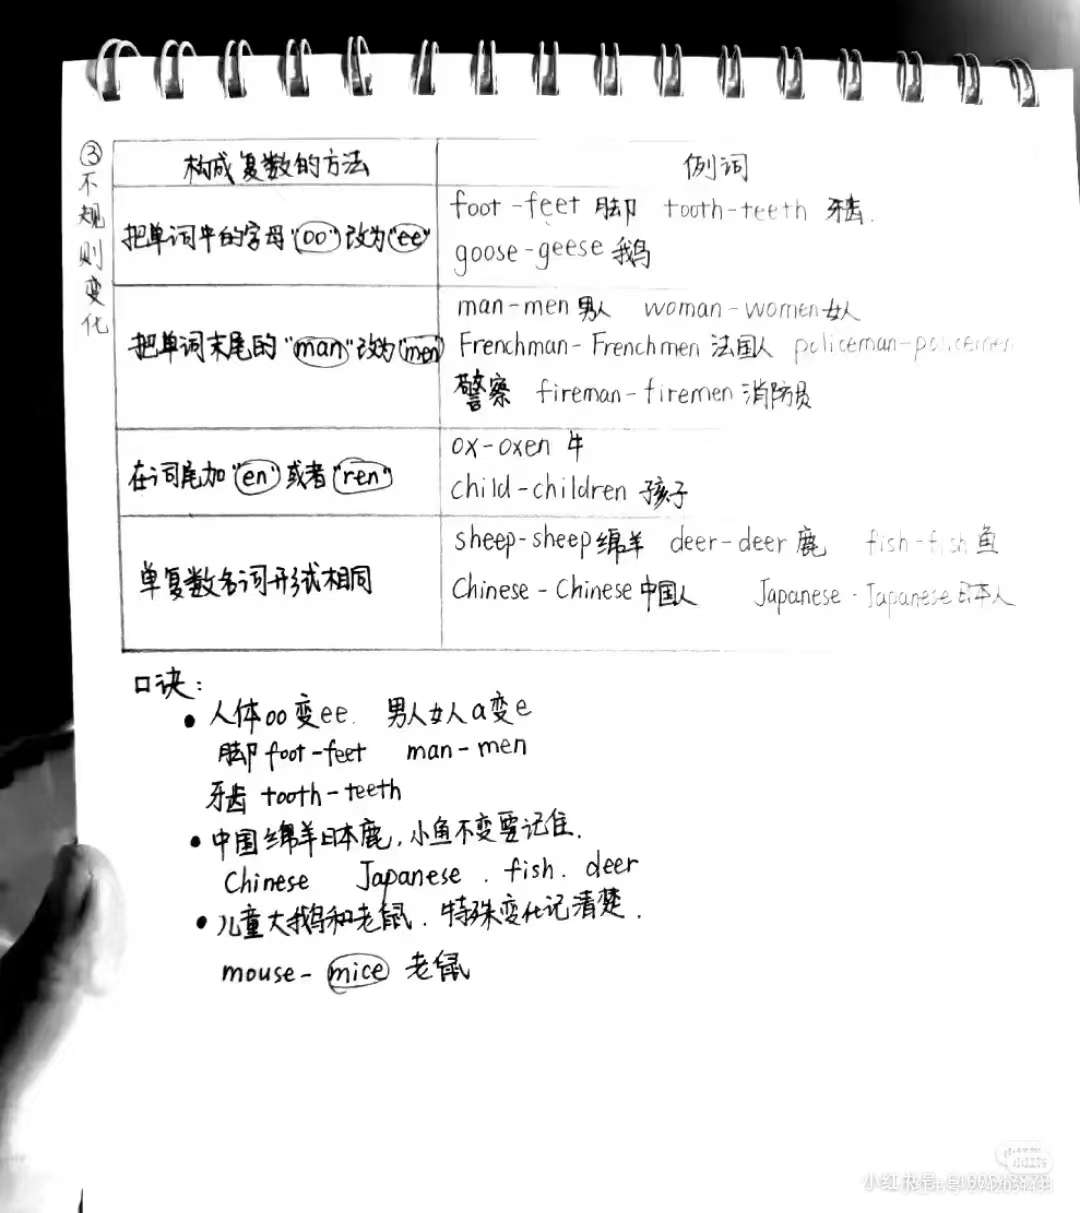 ③不规则变化
构成复数的方法
例词
把单词中的字母"oo"改为"ee"
foot-feet 脚 tooth-teeth 牙齿.
goose-geese 鹅
把单词末尾的"man"改为"men"
man-men 男人 woman-women 女人
Frenchman-Frenchmen 法国人 policeman-policemen
警察 fireman-firemen 消防员
在词尾加"en"或者"ren"
ox-oxen 牛
child-children 孩子
单复数名词形式相同
sheep-sheep 绵羊 deer-deer 鹿 fish-fish 鱼
Chinese-Chinese 中国人 Japanese-Japanese 日本人
口诀:
• 人体oo变ee. 男人女人a变e
脚 foot-feet man-men
牙齿 tooth-teeth
• 中国绵羊日本鹿,小鱼不变要记住.
Chinese Japanese . fish . deer
• 儿童大鹅和老鼠.特殊变化记清楚.
mouse-mice 老鼠
小红书号